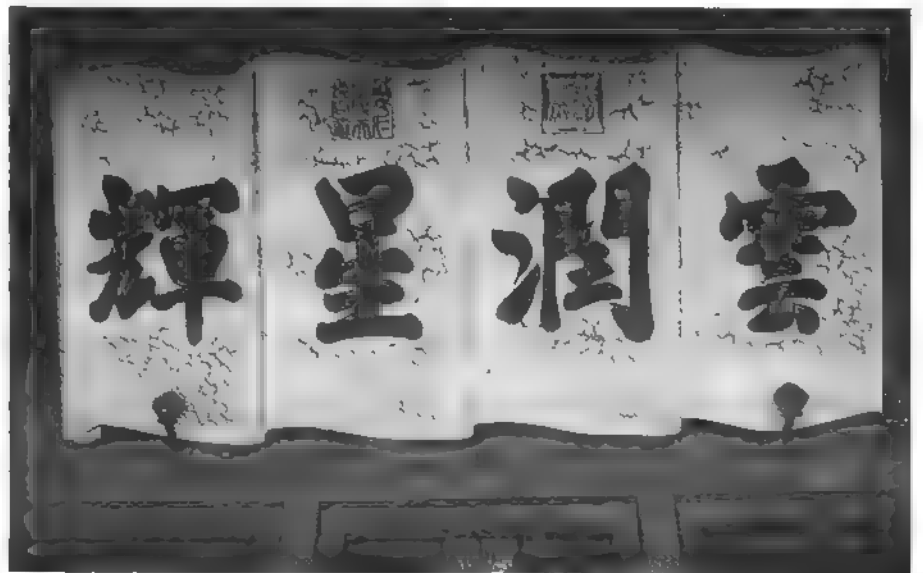 雲潤星輝